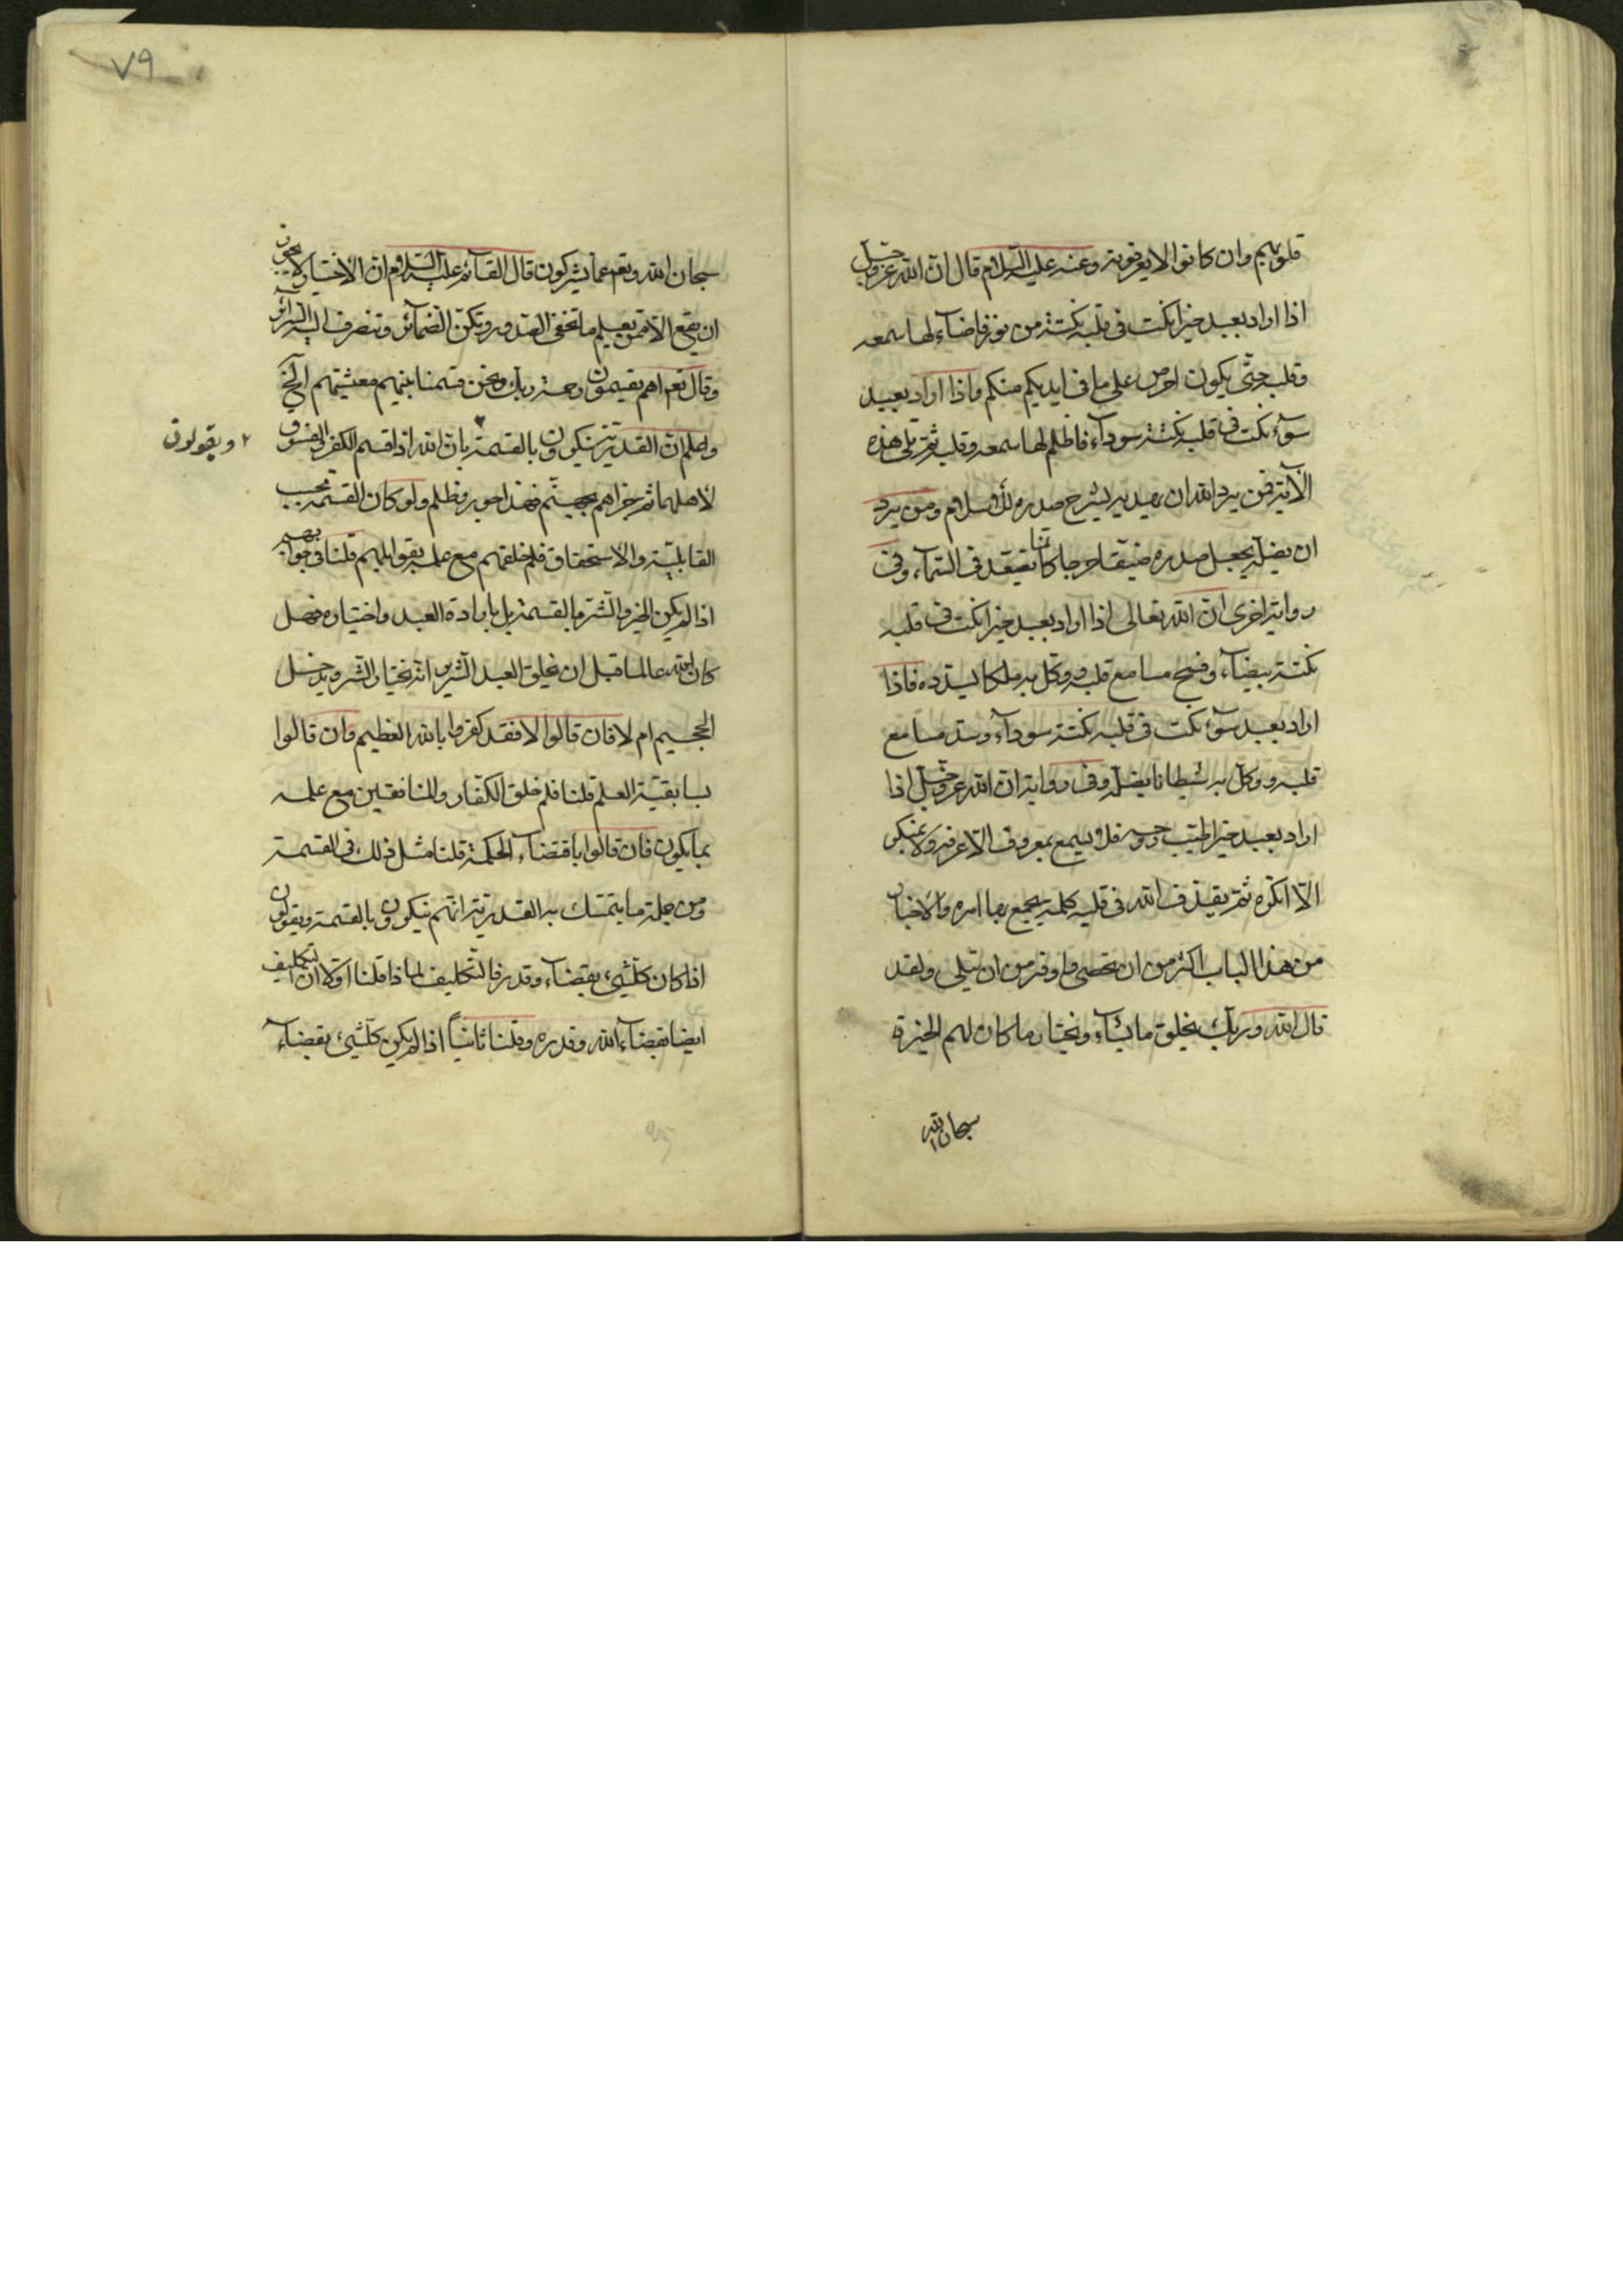 قلوبهم وان كانوا لا يعرفونه وعنه عليه السلام قال ان الله عز وجل
اذا اراد بعبد خيرا نكت فى قلبه نكتة من نور فاضاء لها سمعه
وقلبه حتى يكون احرص على ما فى ايديكم منكم واذا اراد بعبد
سوء نكت فى قلبه نكتة سوداء فاظلم لها سمعه وقلبه ثم تلى هذه
الآية فمن يرد الله ان يهديه يشرح صدره للاسلام ومن يرد
ان يضله يجعل صدره ضيقا حرجا كانما يصعد فى السماء وفى
رواية اخرى ان الله تعالى اذا اراد بعبد خيرا نكت فى قلبه
نكتة بيضاء وفتح مسامع قلبه ووكل به ملكا يسدده فاذا
اراد بعبد سوء نكت فى قلبه نكتة سوداء وسد مسامع
قلبه ووكل به شيطانا يضله وفى رواية ان الله عز وجل اذا
اراد بعبد خيرا طيب روحه فلا يسمع بمعروف الا عرفه ولا بمنكر
الا انكره ثم يقذف الله فى قلبه كلمة يجمع بها امره والاخبار
من هذا الباب اكثر من ان تحصى واوفر من ان تتلى ولقد
قال الله وربك يخلق ما يشاء ويختار ما كان لهم الخيرة
سبحان الله
٧٩
سبحان الله وتعم عما يشركون قال القائم عليه السلام ان الاختيار لا يجوز
ان يقع الا ممن يعلم ما تخفى الصدور وتكن الضمائر وتنصرف اليه السرائر
وقال تعم اهم يقسمون رحمة ربك نحن قسمنا بينهم معيشتهم الخ
واعلم ان القدرية ينكرون بالقسمة بان الله اذا قسم الكفر والفسوق
٢ ويقولون
لاهلهما ثم جزاهم بجهنم فهذا جور وظلم ولو كان القسمة بحسب
القابلية والاستحقاق فلم خلقهم مع علمه بقوابلهم قلنا فى جوابهم
اذا لم يكن الخير والشر بالقسمة بل بارادة العبد واختياره فهل
كان الله عالما قبل ان يخلق العبد الشرير انه يختار الشر ويدخل
الجحيم ام لا فان قالوا لا فقد كفروا بالله العظيم وان قالوا
بسابقية العلم قلنا فلم خلق الكفار والمنافقين مع علمه
بما يكون فان قالوا باقتضاء الحكمة قلنا مثل ذلك فى القسمة
ومن جملة ما يتمسك به القدرية انهم ينكرون بالقسمة ويقولون
اذا كان كلشىء بقضاء وقدر فالتكليف لماذا قلنا اولا ان التكليف
ايضا بقضاء الله وقدره وقلنا ثانيا اذا لم يكن كلشىء بقضاء